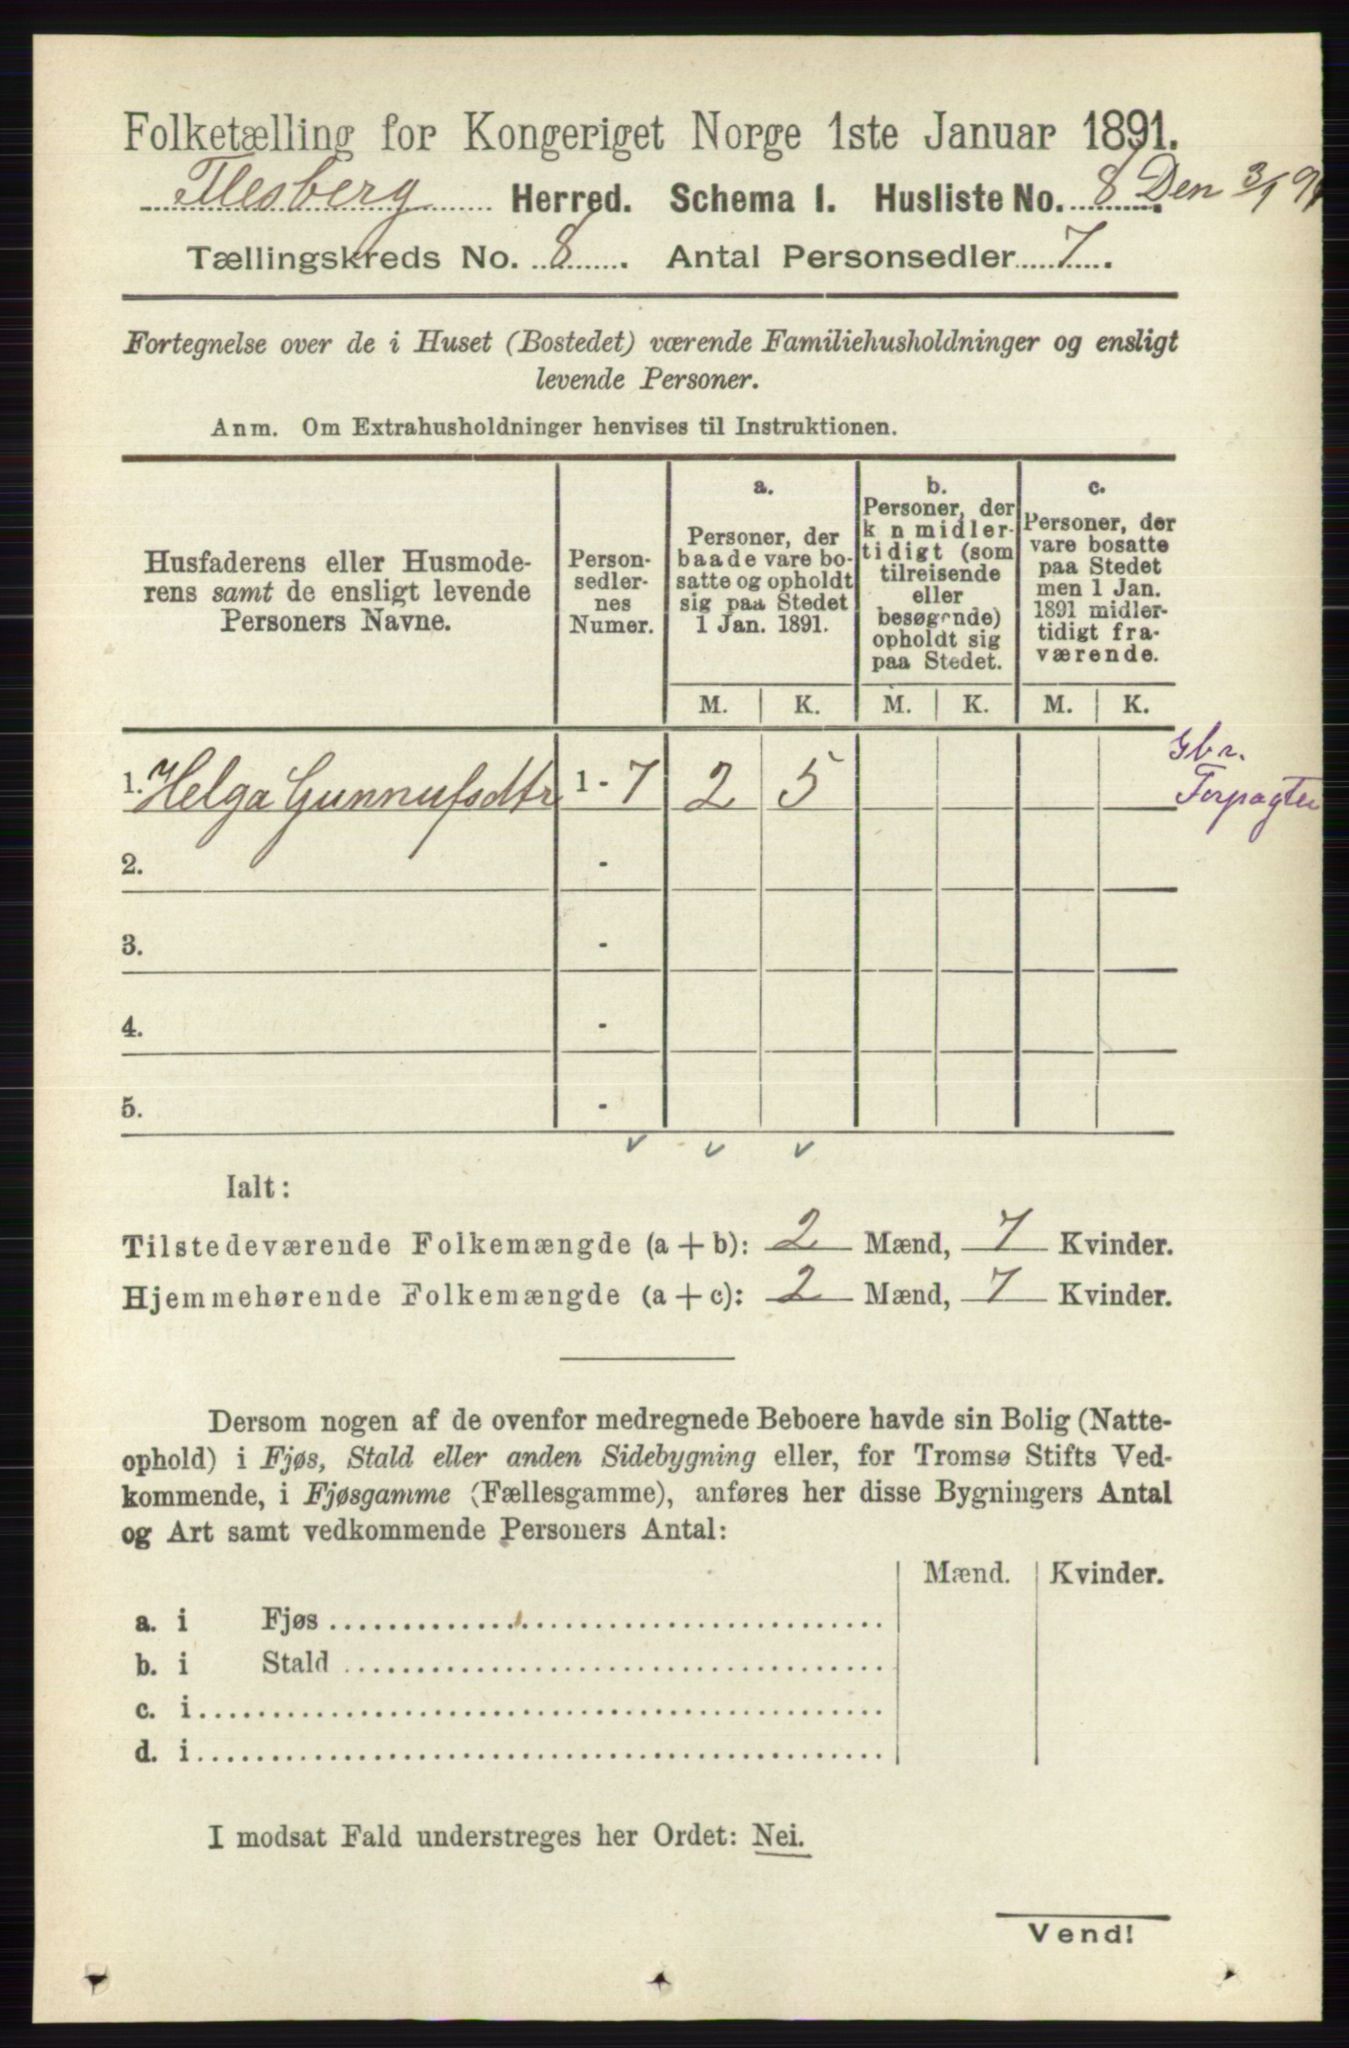 Folketælling for Kongeriget Norge 1ste Januar 1891.
Flesberg Herred. Schema 1. Husliste No. 8. Den 3/1 91
Tællingskreds No. 8. Antal Personsedler 7.
Fortegnelse over de i Huset (Bostedet) værende Familiehusholdninger og ensligt
levende Personer.
Anm. Om Extrahusholdninger henvises til Instruktionen.
Husfaderens eller Husmode-
rens samt de ensligt levende
Personers Navne.
Person-
sedler-
nes
Numer.
a.
Personer, der
baade vare bo-
satte og opholdt
sig paa Stedet
1 Jan. 1891.
b.
Personer, der
k n midler-
tidigt (som
tilreisende
eller
besøgende)
opholdt sig
paa Stedet.
c.
Personer, der
vare bosatte
paa Stedet
men 1 Jan.
1891 midler-
tidigt fra-
værende.
M. K. M. K. M. K.
1. Helga Gunnufsdtr 1 - 7 2 5
Gbr.
Forpagter
2. -
3. -
4. -
5. -
Ialt:
Tilstedeværende Folkemængde (a + b): 2 Mænd, 7 Kvinder.
Hjemmehørende Folkemængde (a + c): 2 Mænd, 7 Kvinder.
Dersom nogen af de ovenfor medregnede Beboere havde sin Bolig (Natte-
ophold) i Fjøs, Stald eller anden Sidebygning eller, for Tromsø Stifts Ved-
kommende, i Fjøsgamme (Fællesgamme), anføres her disse Bygningers Antal
og Art samt vedkommende Personers Antal:
Mænd. Kvinder.
a. i Fjøs
b. i Stald
c. i
d. i
I modsat Fald understreges her Ordet: Nei.
Vend!